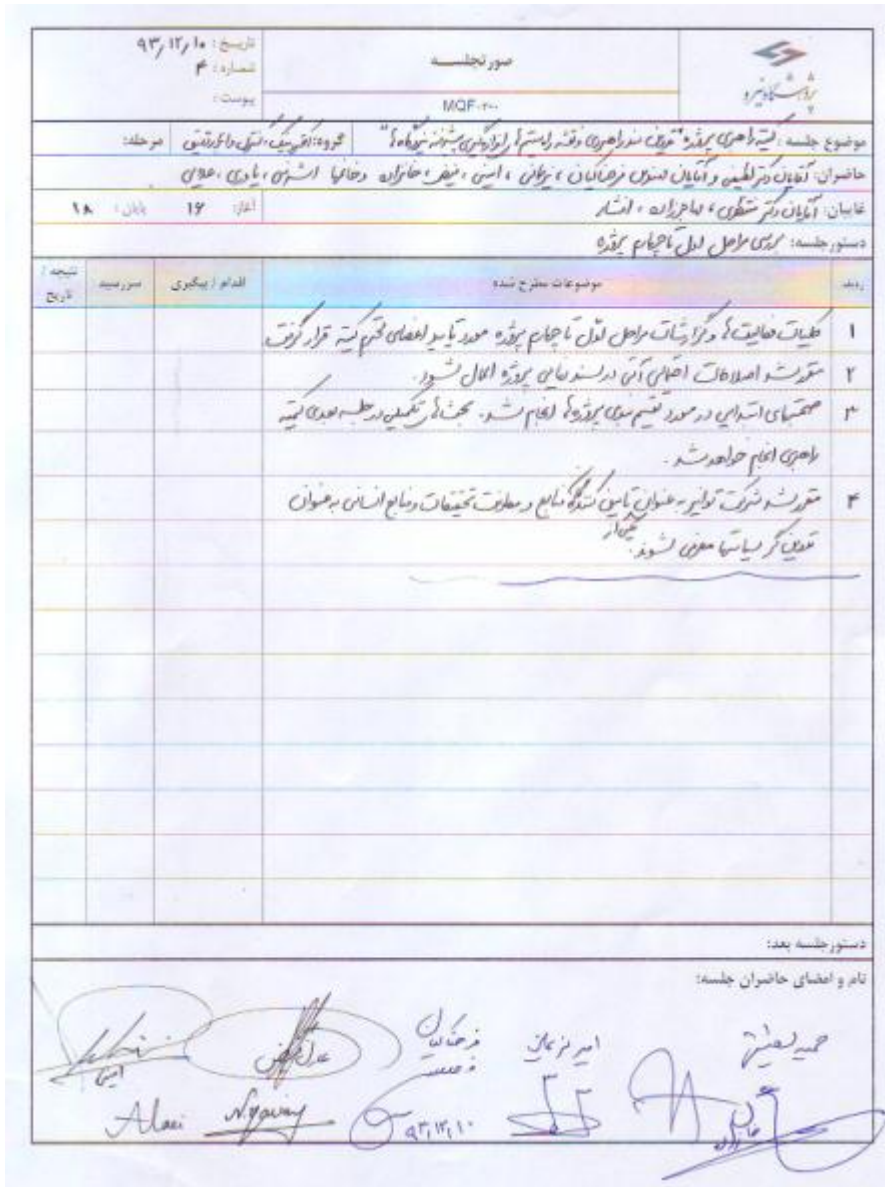 تاریخ: ۹۳/۱۲/۱۰
شماره: ۴
پیوست:
صورتجلسه
MQF-۲۰۰
پژوهشگاه نیرو
موضوع جلسه: کمیته راهبری پروژه "تدوین سند راهبردی و نقشه راه سیستم‌های ابزار دقیق پیشرفته نیروگاه‌ها" گروه: الکترونیک، کنترل و ابزار دقیق مرحله:
حاضران: آقایان دکتر لطیفی و آقایان مهندس فرهنگیان، یزمانی، امینی، فیض، خانزاده و خانمها یاوری، علایی
غایبان: آقایان دکتر منتظری، افشار آغاز: ۱۶ پایان: ۱۸
دستور جلسه: بررسی مراحل اول تا چهارم پروژه
ردیف موضوعات مطرح شده اقدام / پیگیری سررسید نتیجه / تاریخ
۱ کلیات فعالیت‌ها و گزارشات مراحل اول تا چهارم پروژه مورد تایید اعضای محترم کمیته قرار گرفت
۲ مقرر شد اصلاحات احتمالی آتی در سند نهایی پروژه اعمال شود.
۳ صحبتهای ابتدایی در مورد تقسیم بندی پروژه‌ها انجام شد. بحث‌های تکمیلی در جلسه بعدی کمیته
راهبری انجام خواهد شد.
۴ مقرر شد شرکت توانیر به عنوان تامین کننده منابع و معاونت تحقیقات و منابع انسانی به عنوان
یکی از
تدوین گر سیاستها معرفی شوند.
دستور جلسه بعد:
نام و امضای حاضران جلسه:
فرهنگیان
امینی
Alaei
N.yavary
۹۳,۱۲,۱۰